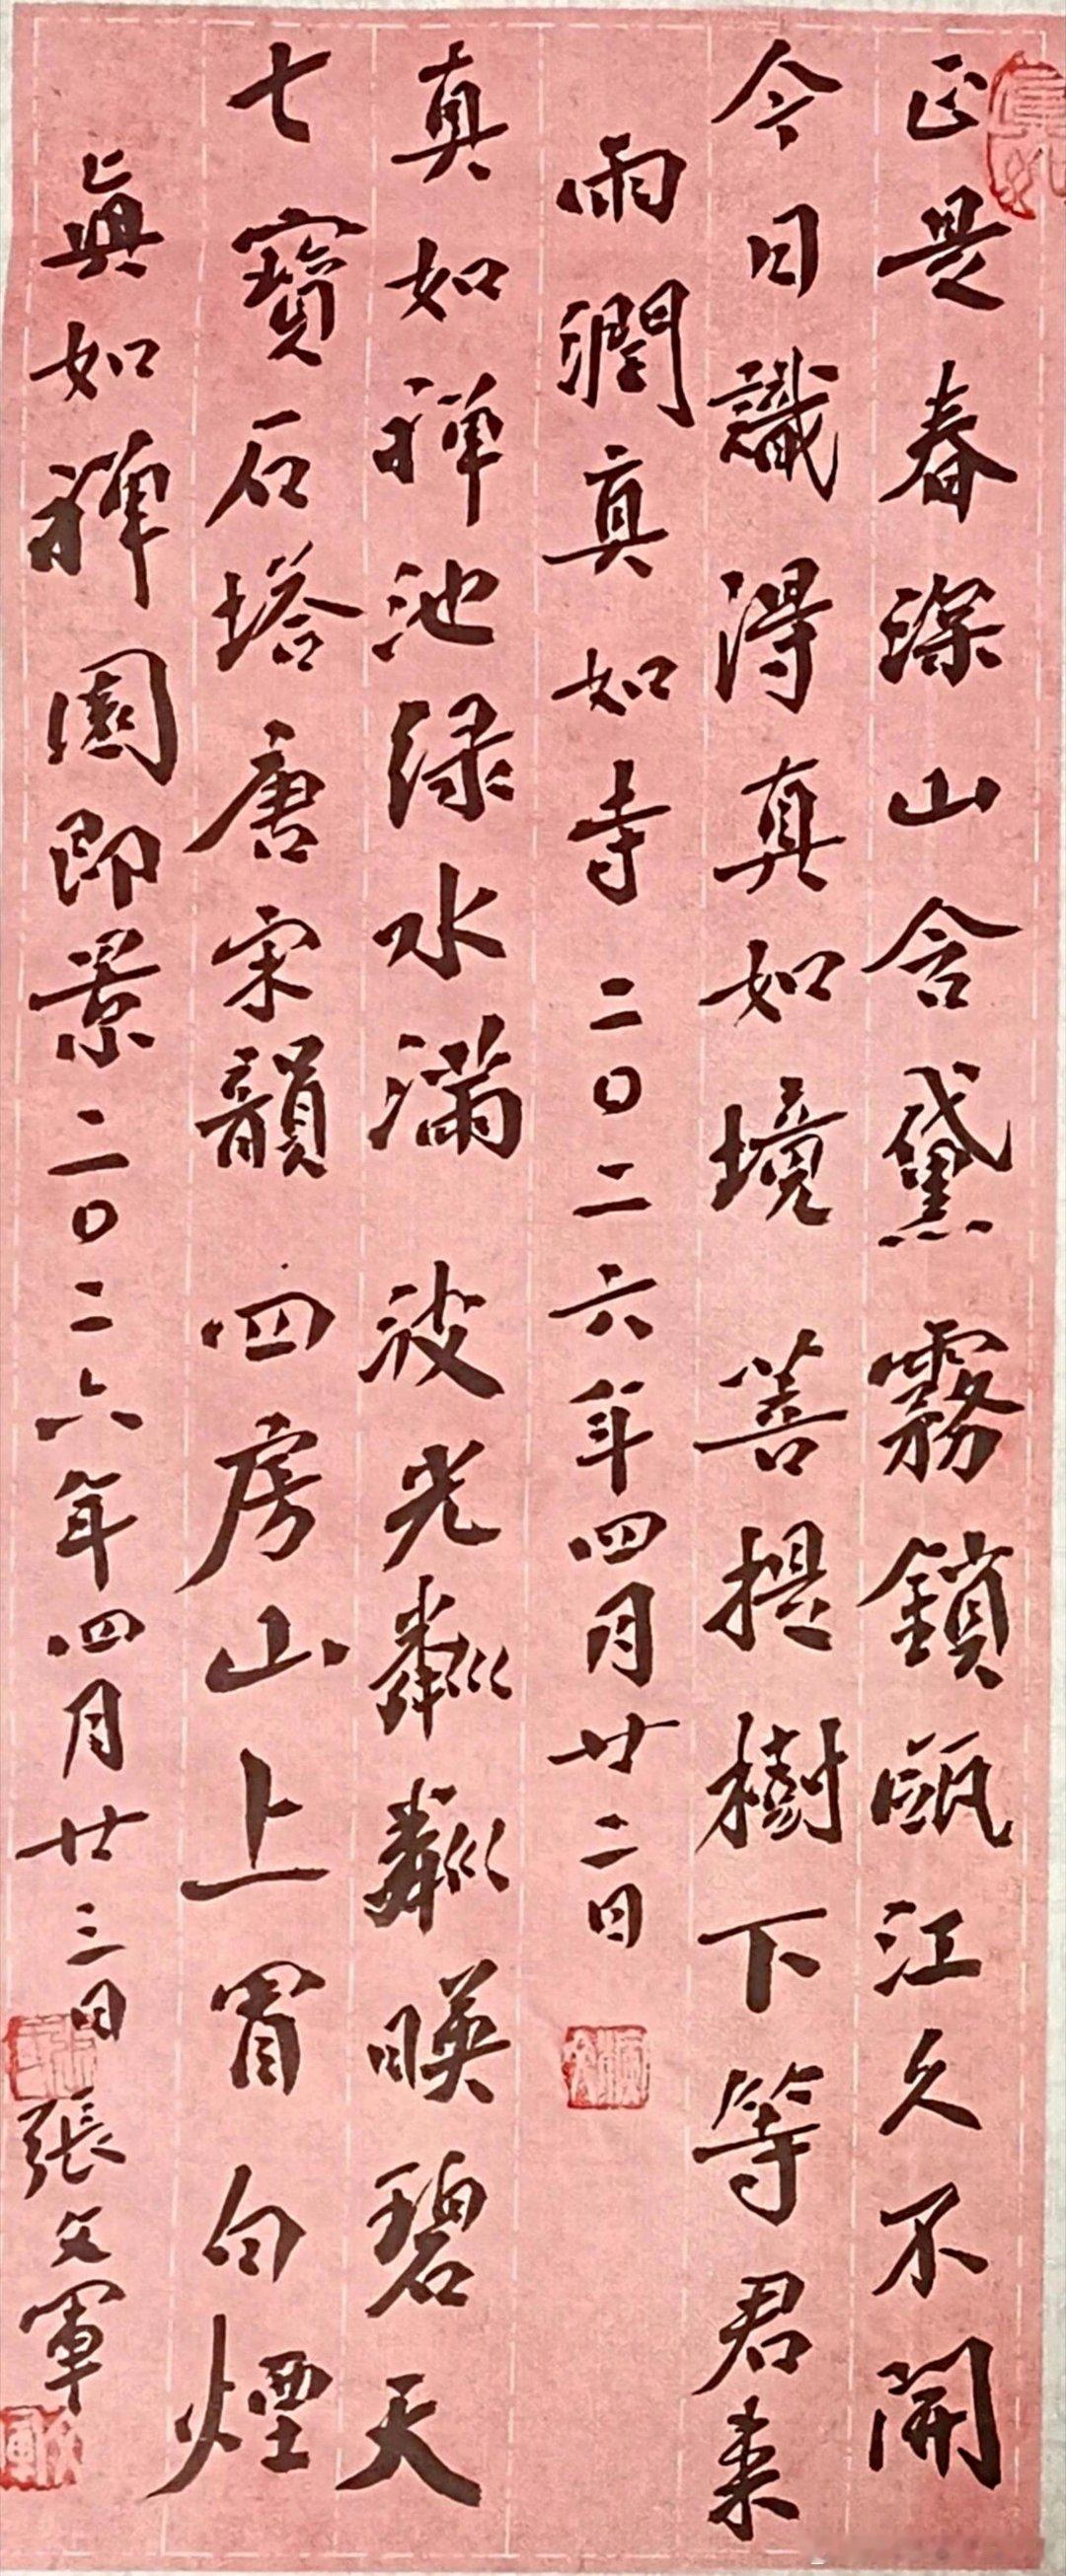 正是春深山含黛霧鎖甌江久不開
今日識得真如境菩提樹下等君来
雨潤真如寺二〇二六年四月廿二日
真如禅池绿水滿波光粼粼暎碧天
七寶石塔唐宋韻四房山上冒白煙
眞如禅園即景二〇二六年四月廿三日張文軍